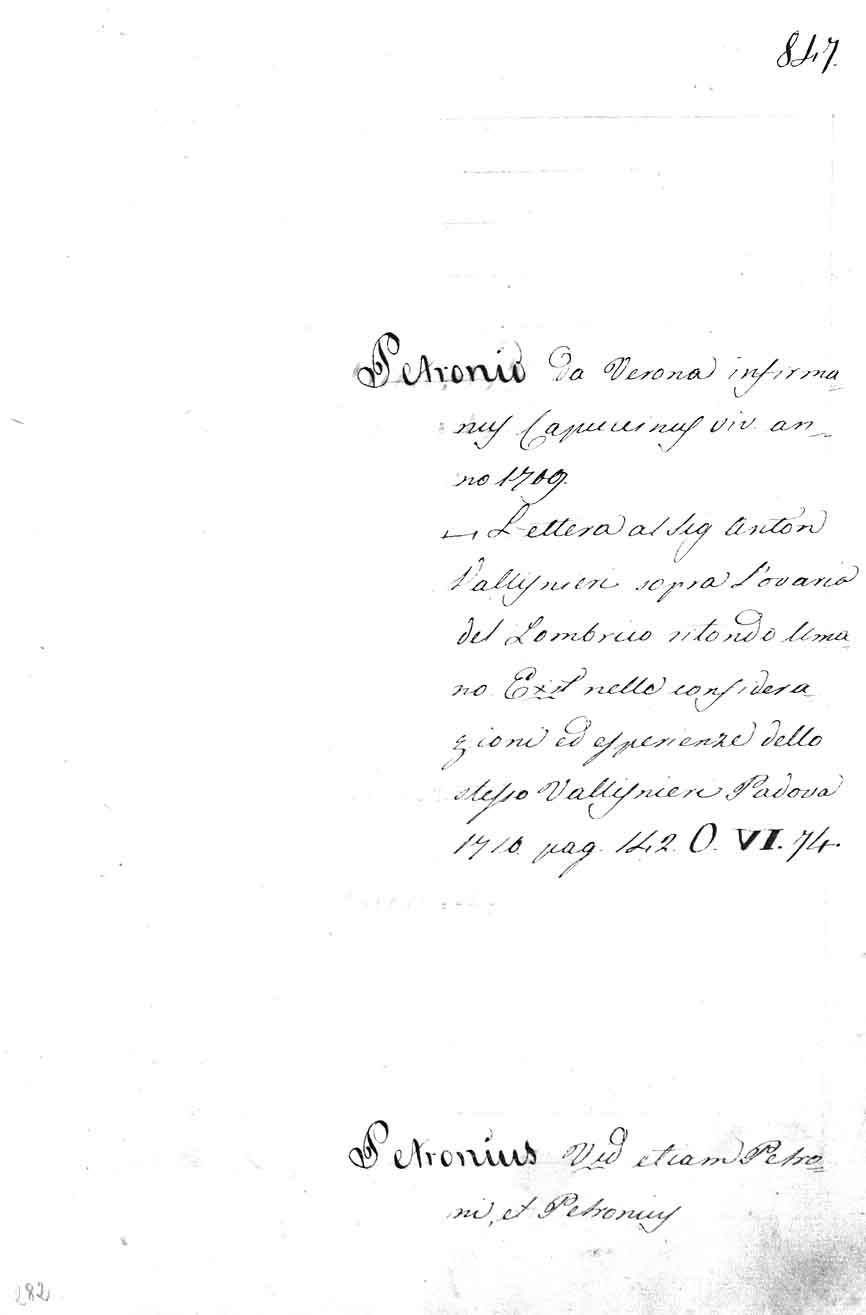 847.
Petronio da Verona infirma-
nus Capucinus viv. an-
no 1709.
— Lettera al Sig Anton
Vallisnieri sopra l'ovario
del Lombrico ritondo Uma-
no. Exist nelle considera-
zioni ed esperienze dello
stesso Vallisnieri Padova
1710. pag. 142. O. VI. 74.
Petronius Vid etiam Petro-
ni, et Petronius
282